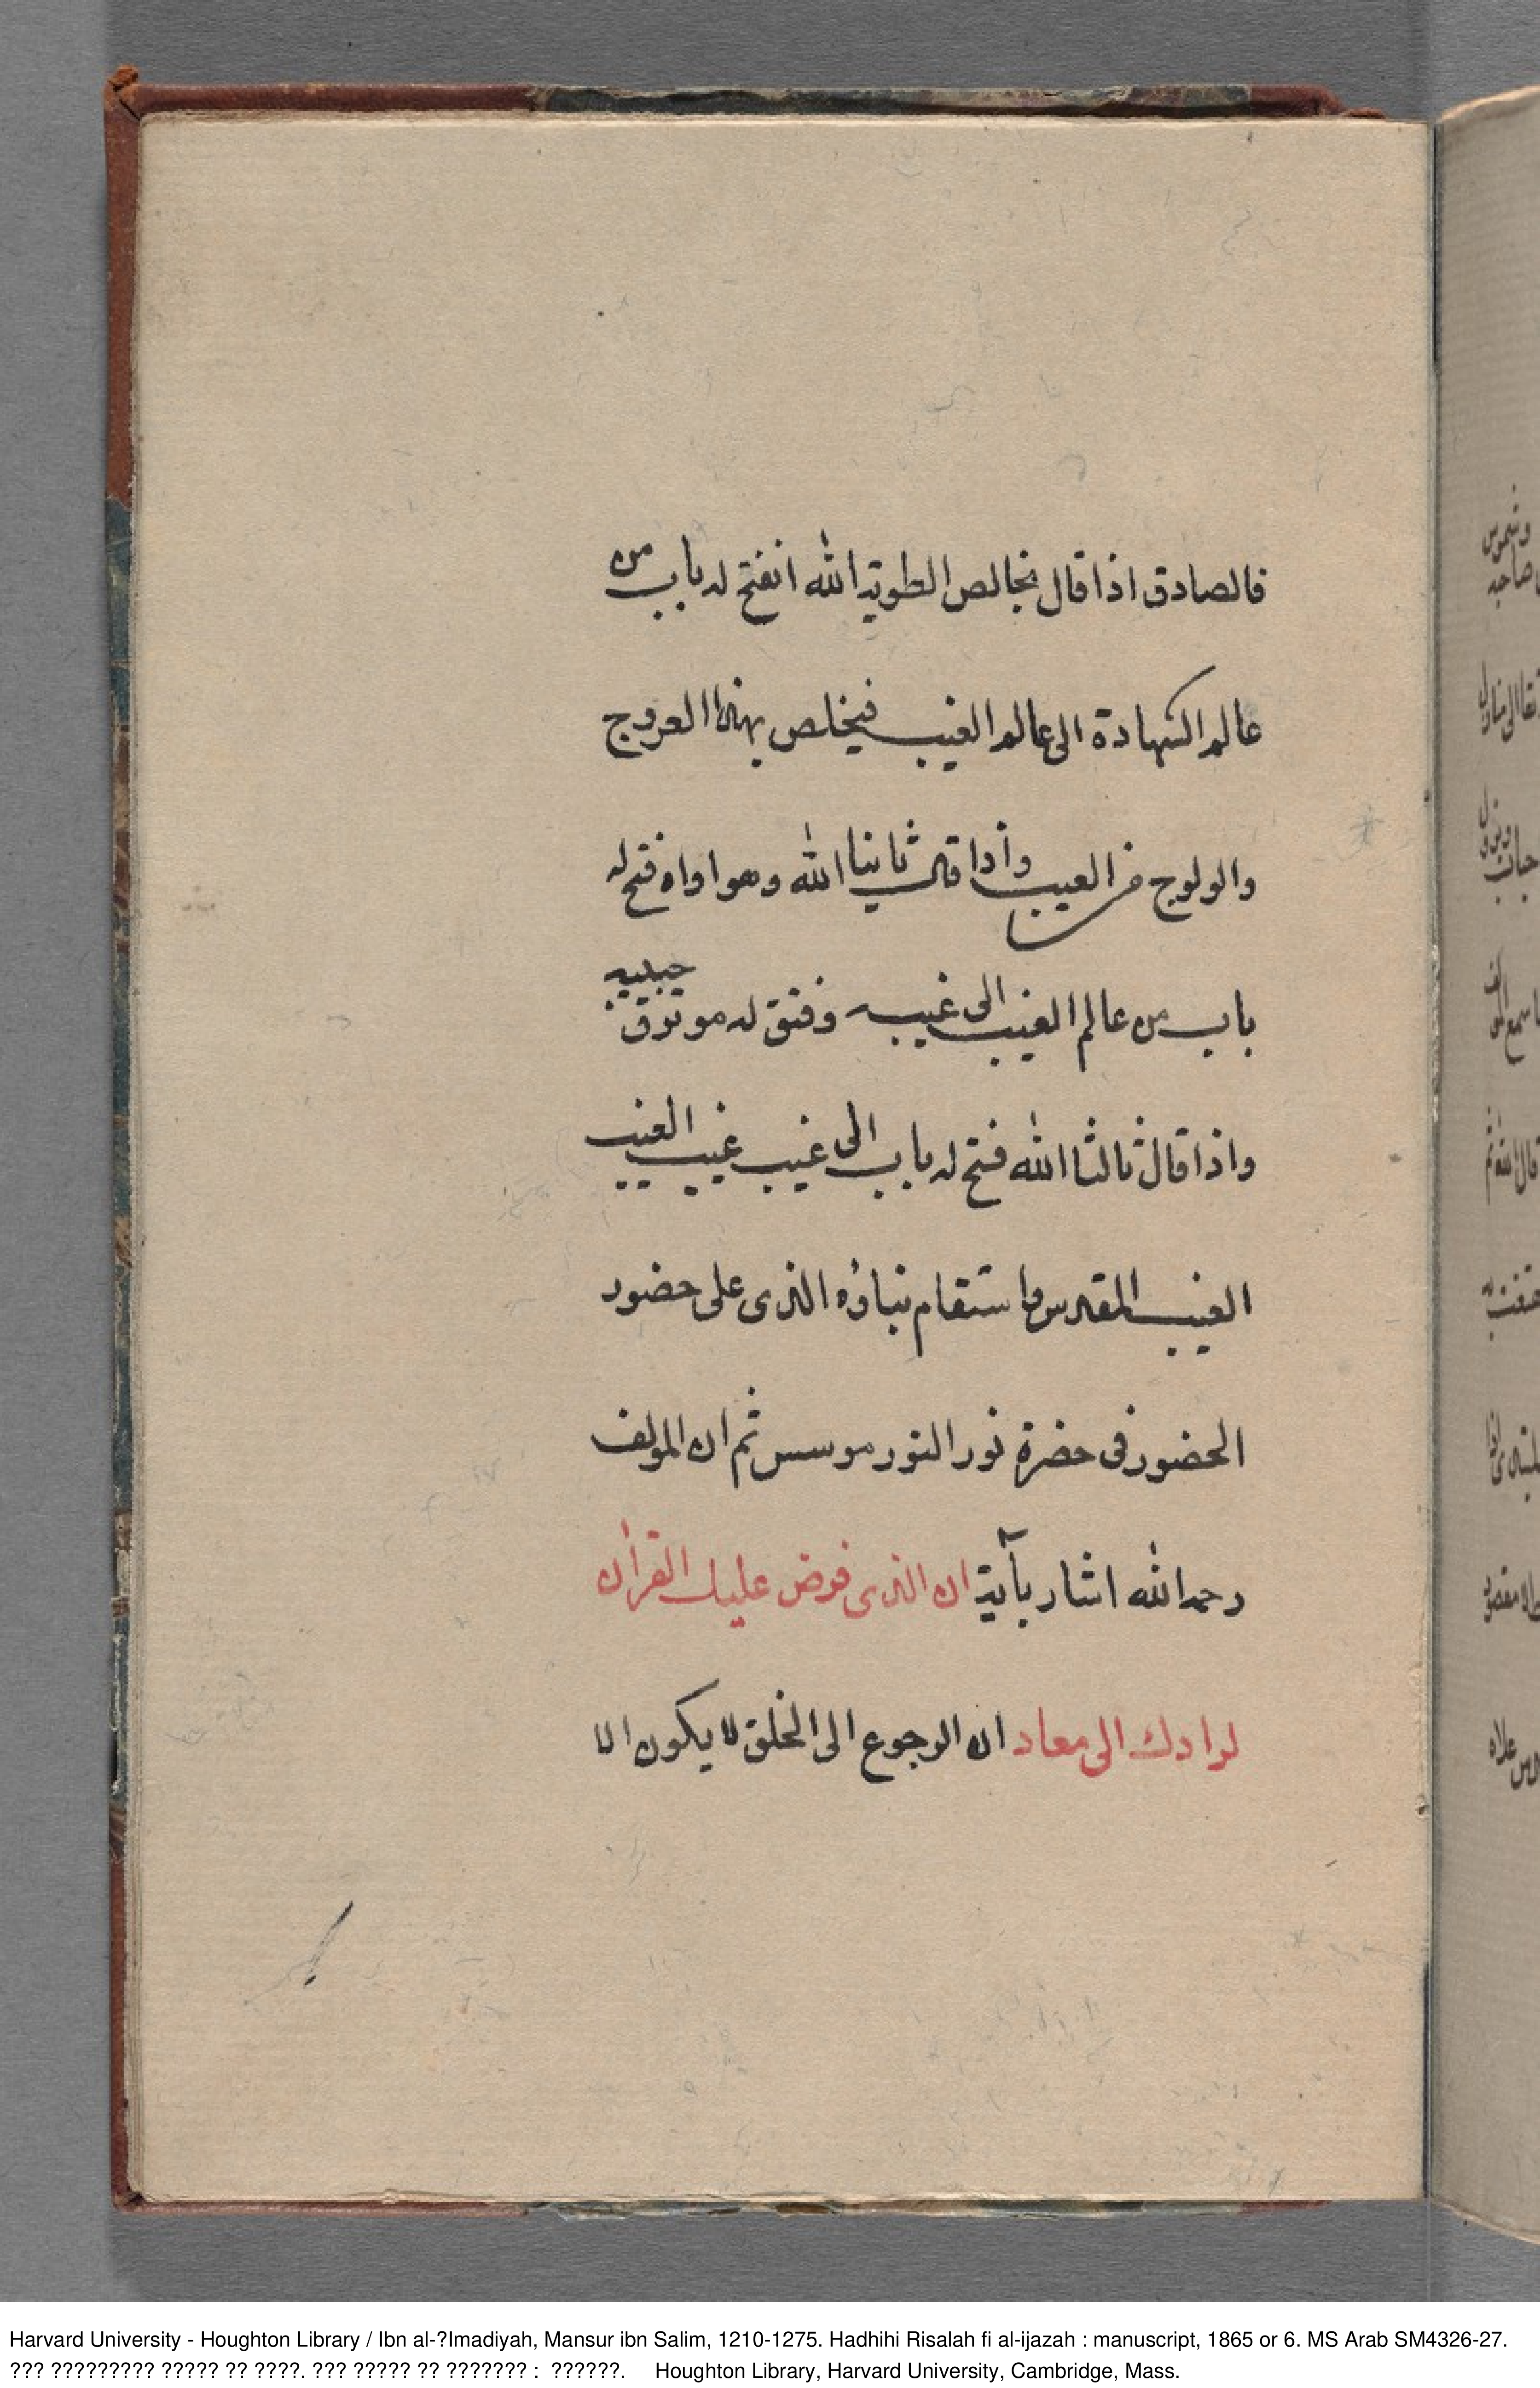 فالصادق اذا قال بخالص الطوية الله انفتح له باب من
عالم الشهادة الى عالم الغيب فيخلص بهذا العروج
والولوج من العيب واذا قال ثانيا الله وهو اواه فتح له
باب من عالم الغيب الى غيبه وفتق له موثوق جيبه
واذا قال ثالثا الله فتح له باب الى غيب غيب الغيب
الغيب المقدس واستقام بناؤه الذى على حضور
الحضور فى حضرة نور النور موسس ثم ان المولف
رحمه الله اشار بآية ان الذى فرض عليك القرأن
لرادك الى معاد ان الرجوع الى الخلق لا يكون الا
Harvard University - Houghton Library / Ibn al-?Imadiyah, Mansur ibn Salim, 1210-1275. Hadhihi Risalah fi al-ijazah : manuscript, 1865 or 6. MS Arab SM4326-27.
??? ????????? ????? ?? ????. ??? ????? ?? ??????? : ??????. Houghton Library, Harvard University, Cambridge, Mass.